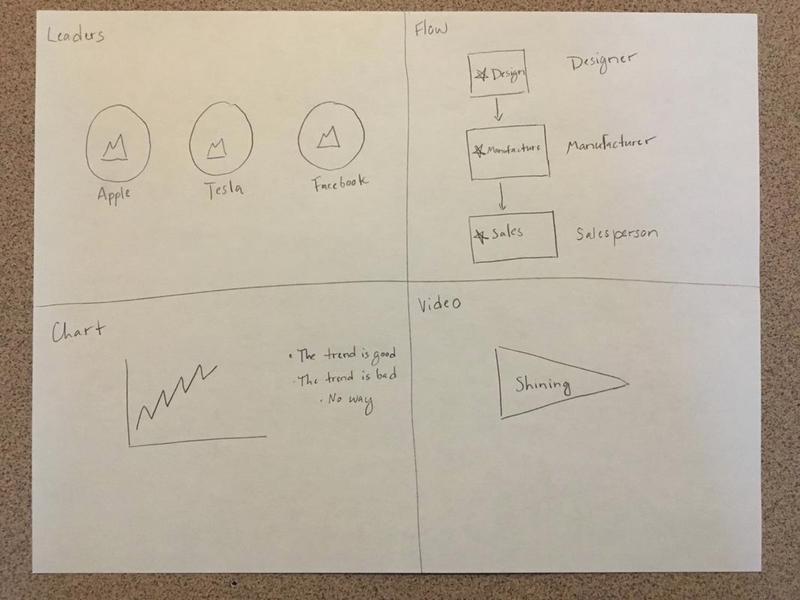 Leaders
Apple
Tesla
Facebook
Flow
Design
Designer
Manufacture
Manufacturer
Sales
Salesperson
Chart
• The trend is good
· The trend is bad
· No way
Video
Shining